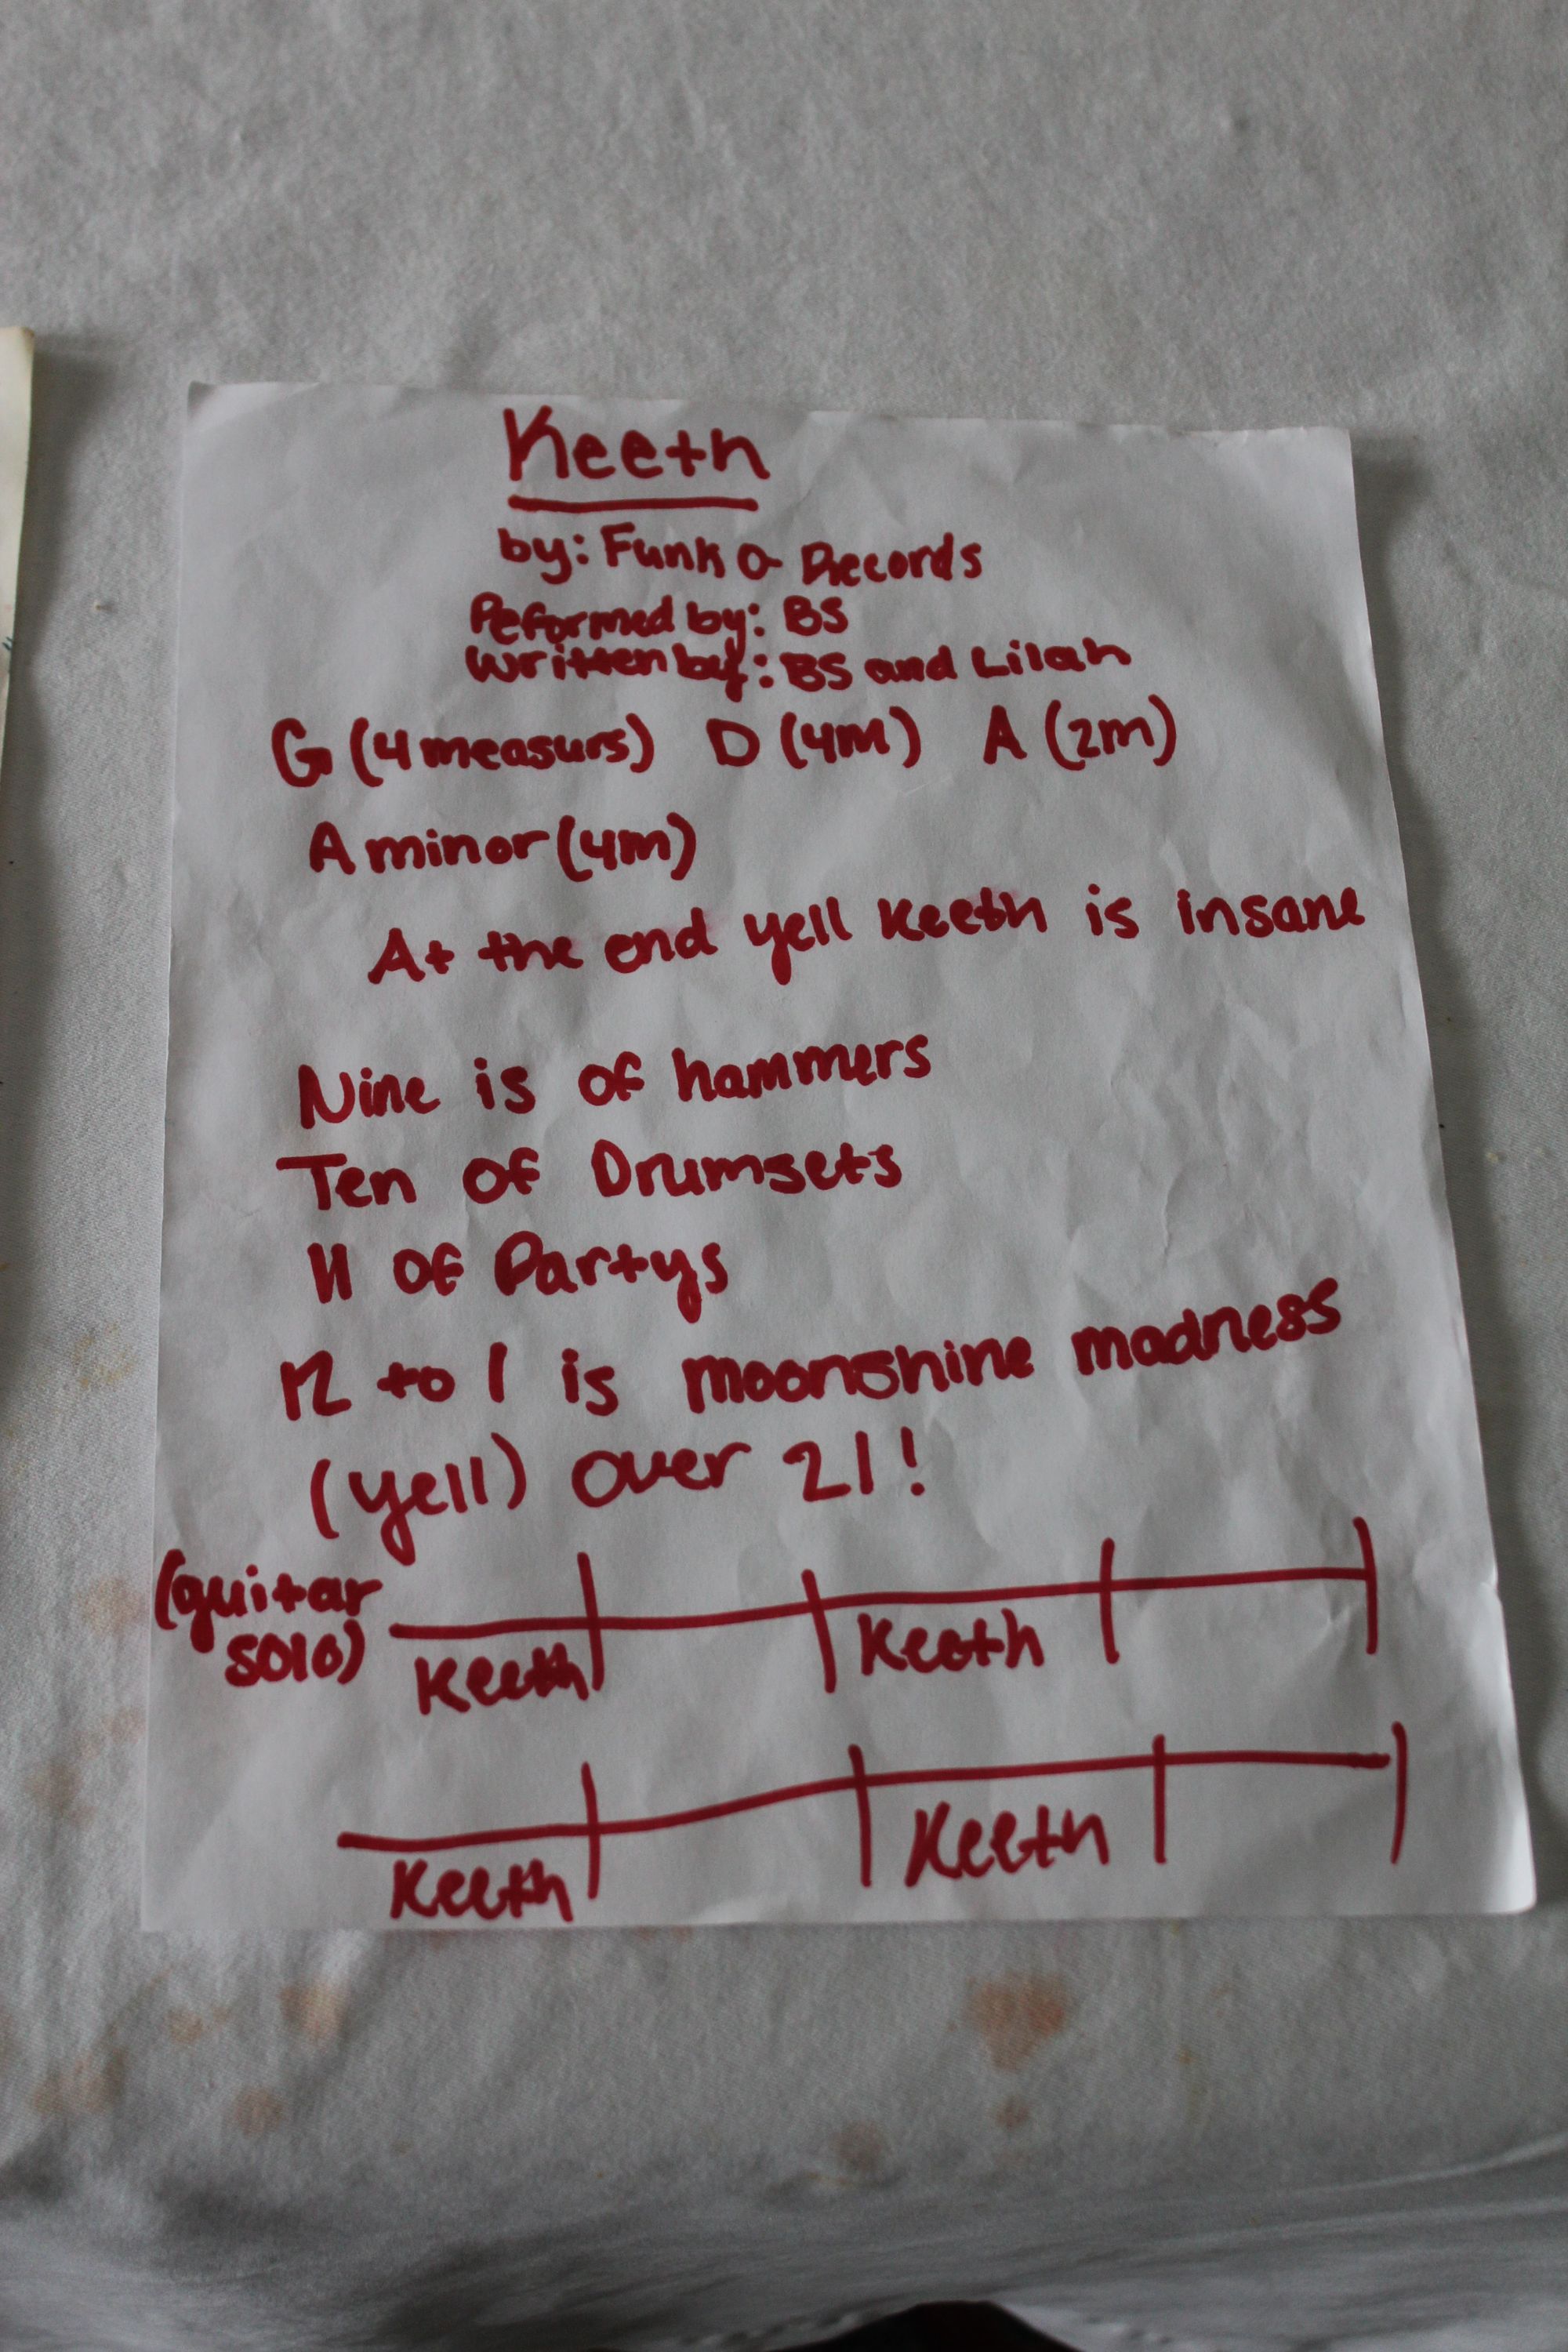 Keeth
by: Funk O Records
Peformed by: BS
Written by: BS and Lilah
G (4 measurs) D (4M) A (2m)
A minor (4m)
At the end yell Keeth is insane
Nine is of hammers
Ten of Drumsets
11 of Partys
12 to 1 is moonshine madness
(yell) over 21!
(guitar
solo)
Keeth Keeth
Keeth Keeth